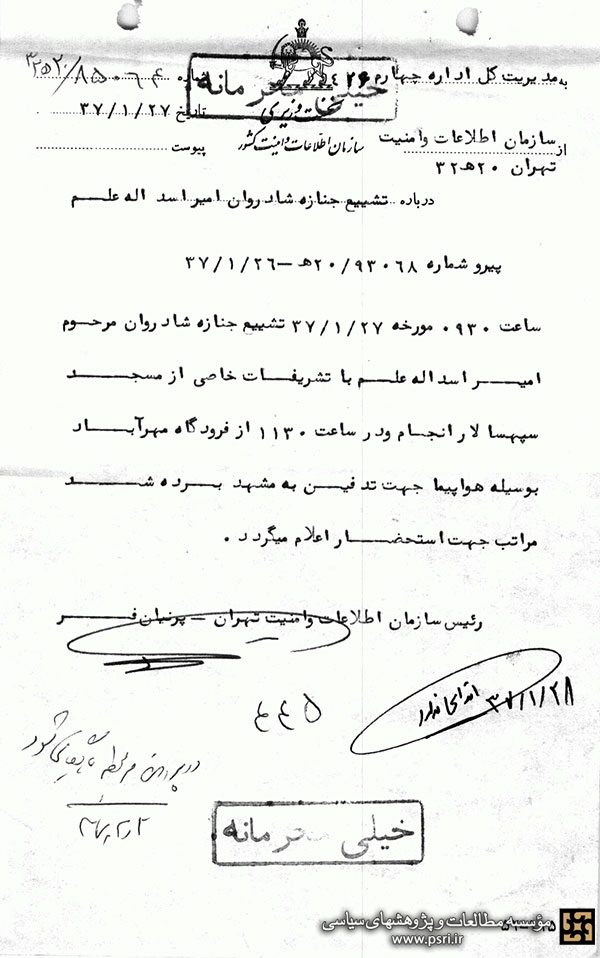 به مدیریت کل اداره چهارم ۴۲۶
شماره
خیلی محرمانه
نخست وزیری
تاریخ ۳۷/۱/۲۷
از سازمان اطلاعات وامنیت
سازمان اطلاعات و امنیت کشور
پیوست
تهران ۲۰هـ۳۲
درباره تشییع جنازه شادروان امیراسد اله علم
پیرو شماره ۲۰/۹۳۰۶۸هـ–۳۷/۱/۲۶
ساعت ۰۹۳۰ مورخه ۳۷/۱/۲۷ تشییع جنازه شادروان مرحوم
امیر اسداله علم با تشریفات خاصی از مسجد
سپهسالار انجام ودر ساعت ۱۱۳۰ از فرودگاه مهرآباد
بوسیله هواپیما جهت تدفین به مشهد برده شد
مراتب جهت استحضار اعلام میگردد .
رئیس سازمان اطلاعات وامنیت تهران – پرنیان فر
۳۷/۱/۲۸
۴۴۵
خیلی محرمانه
مؤسسه مطالعات و پژوهشهای سیاسی
www.psri.ir